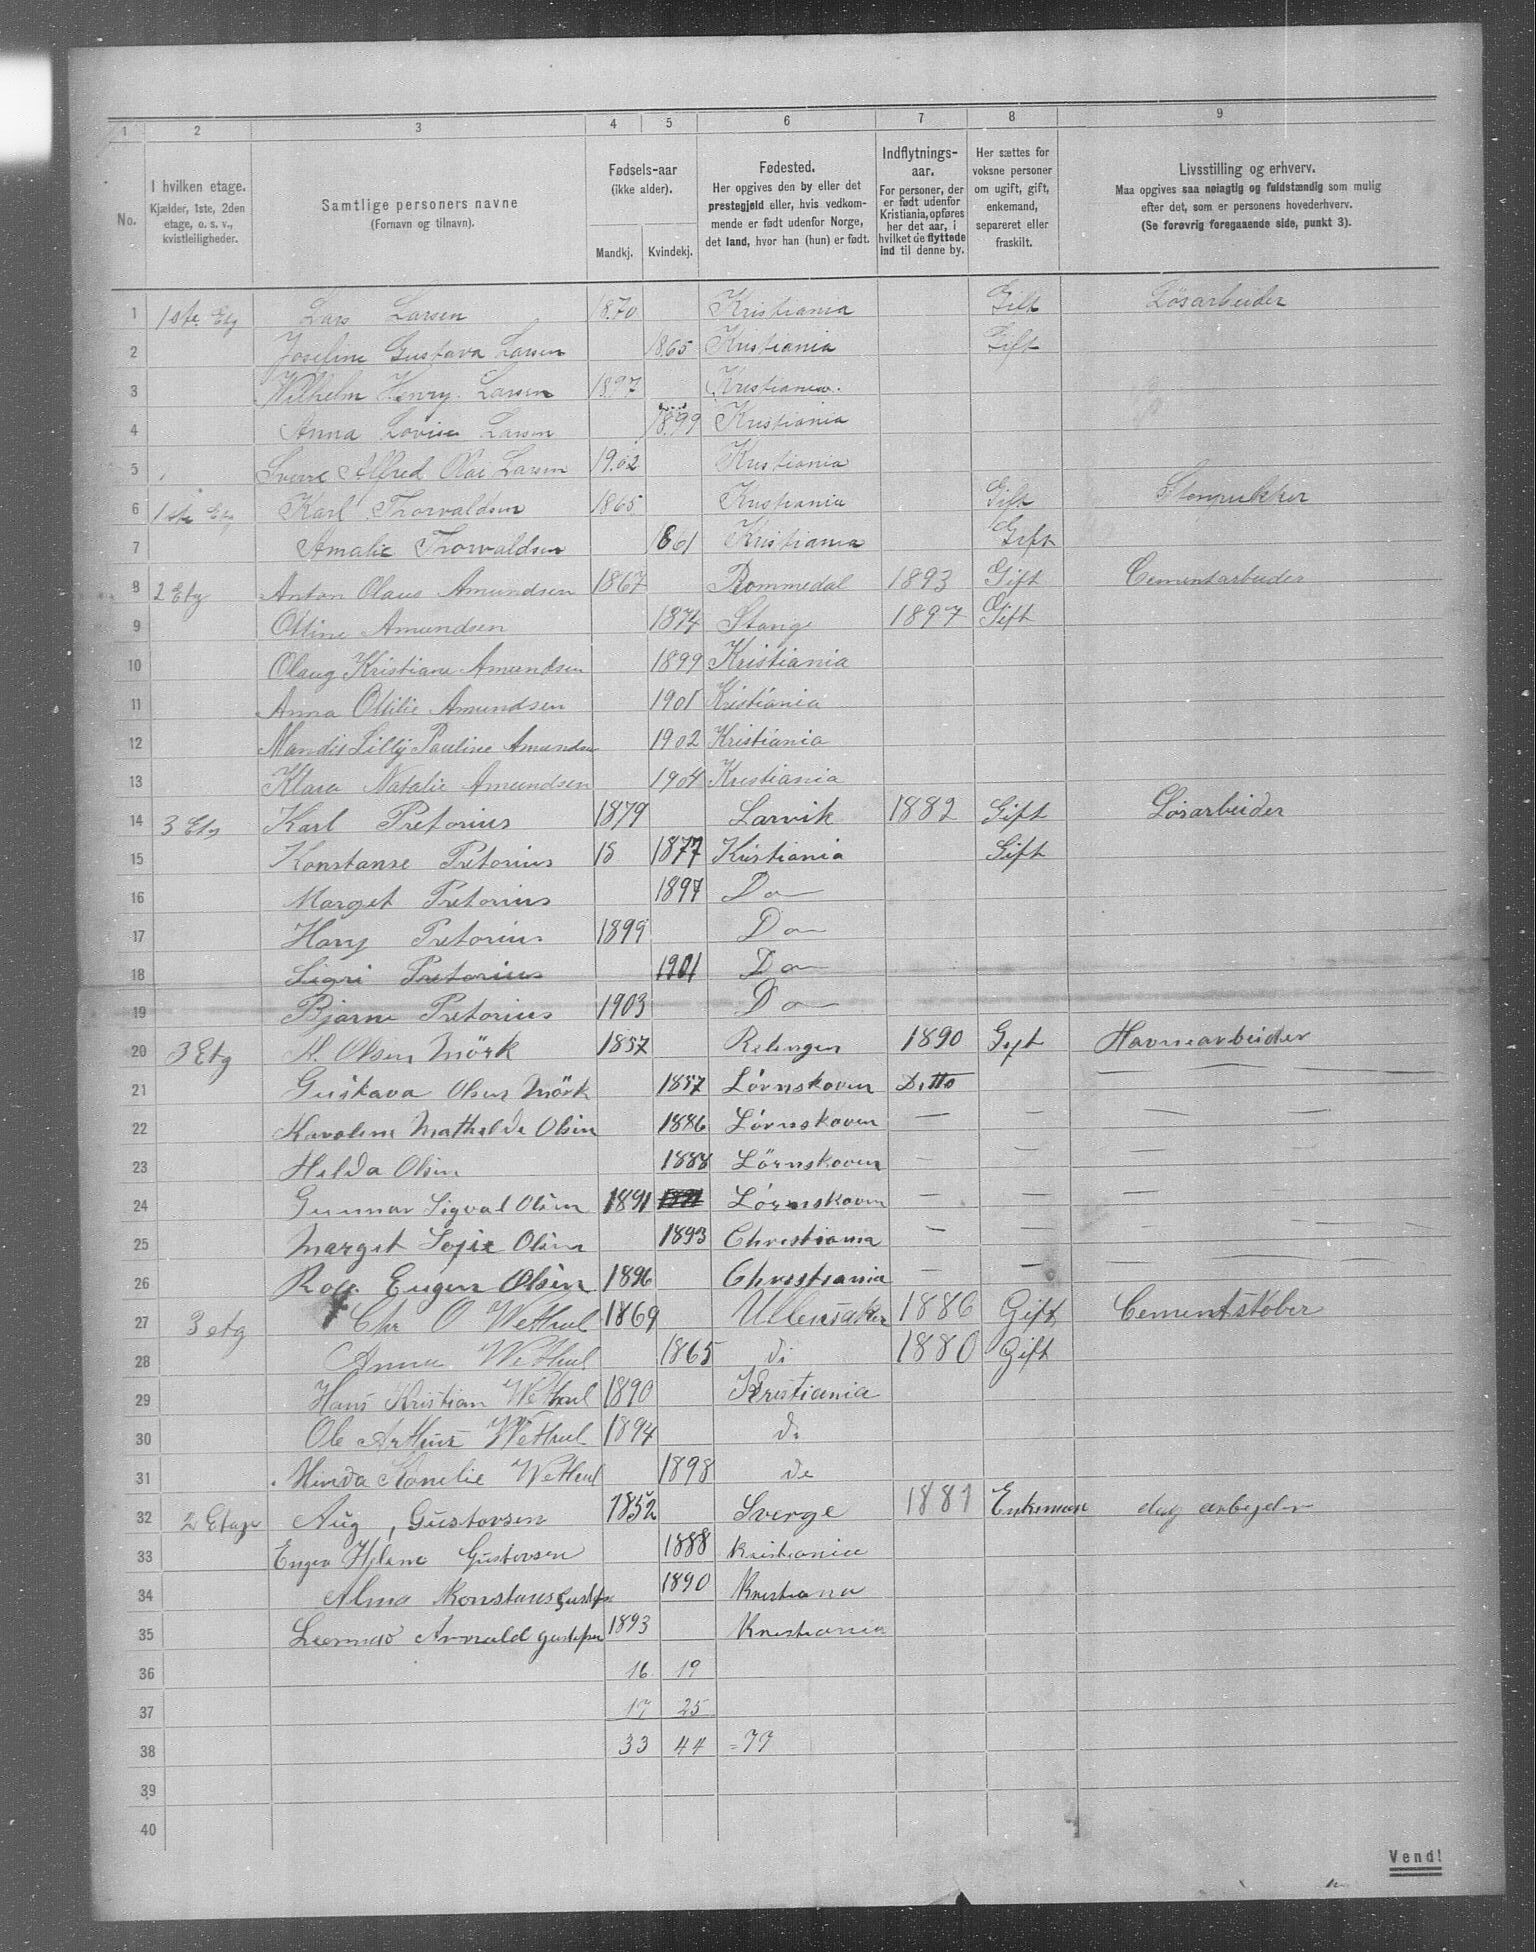 1 2 3 4 5 6 7 8 9
No.
I hvilken etage.
Kjælder, 1ste, 2den
etage, o. s. v.,
kvistleiligheder.
Samtlige personers navne
(Fornavn og tilnavn).
Fødsels-aar
(ikke alder).
Mandkj. Kvindekj.
Fødested.
Her opgives den by eller det
prestegjeld eller, hvis vedkom-
mende er født udenfor Norge,
det land, hvor han (hun) er født.
Indflytnings-
aar.
For personer, der
er født udenfor
Kristiania, opføres
her det aar, i
hvilket de flyttede
ind til denne by.
Her sættes for
voksne personer
om ugift, gift,
enkemand,
separeret eller
fraskilt.
Livsstilling og erhverv.
Maa opgives saa nøiagtig og fuldstændig som mulig
efter det, som er personens hovederhverv.
(Se forøvrig foregaaende side, punkt 3).
1 1ste Etg Lars Larsen 1870 Kristiania Gift Løsarbeider
2 Joseline Gustava Larsen 1865 Kristiania Gift
3 Wilhelm Henry Larsen 1897 Kristiania
4 Anna Lovise Larsen 1899 Kristiania
5 Sverre Alfred Olae Larsen 1902 Kristiania
6 1ste Etg Karl Thorvaldsen 1865 Kristiania Gift Stenpukker
7 Amalie Thorvaldsen 1861 Kristiania Gift
8 2 Etg Anton Olaus Amundsen 1867 Rommedal 1893 Gift Cementarbeider
9 Otline Amundsen 1874 Stange 1897 Gift
10 Olaug Kristiane Amundsen 1899 Kristiania
11 Anna Otilie Amundsen 1901 Kristiania
12 Mandis Lilly Pauline Amundsen 1902 Kristiania
13 Klara Natalie Amundsen 1904 Kristiania
14 3 Etg Karl Pretorius 1879 Larvik 1882 Gift Løsarbeider
15 Konstanse Pretorius 18 1877 Kristiania Gift
16 Marget Pretorius 1897 Do
17 Harry Pretorius 1899 Do
18 Sigri Pretorius 1901 Do
19 Bjarne Pretorius 1903 Do
20 3 Etg A. Olsen Mörk 1857 Relingen 1890 Gift Havnearbeider
21 Gustava Olsen Mörk 1857 Lörnskoven Ditto — — —
22 Karoline Mathilde Olsen 1886 Lörnskoven — — — — —
23 Helda Olsen 1888 Lörnskoven — — — — —
24 Gunnar Sigval Olsen 1891 Lörnskoven — — —
25 Marget Sofie Olsen 1893 Christiania — — — — —
26 Eugen Olsen 1896 Christiania — — — —
27 3 etg Chr O Wethul 1869 Ullensaker 1886 Gift Cementstøber
28 Anna Wethul 1865 di 1880 Gift
29 Hans Kristian Wethul 1890 Kristiania
30 Ole Arthur Wethul 1894 di
31 Kornelie Wethul 1898 de
32 2 Etage Aug, Gustavsen 1852 Sverge 1881 Enkeman dag arbejder
33 Helene Gustavsen 1888 Kristiania
34 Alma Konstanse 1890 Kristiana
35 Arnald 1893 Kristiania
36 16 19
37 17 25
38 33 44 = 77
39
40
Vend!